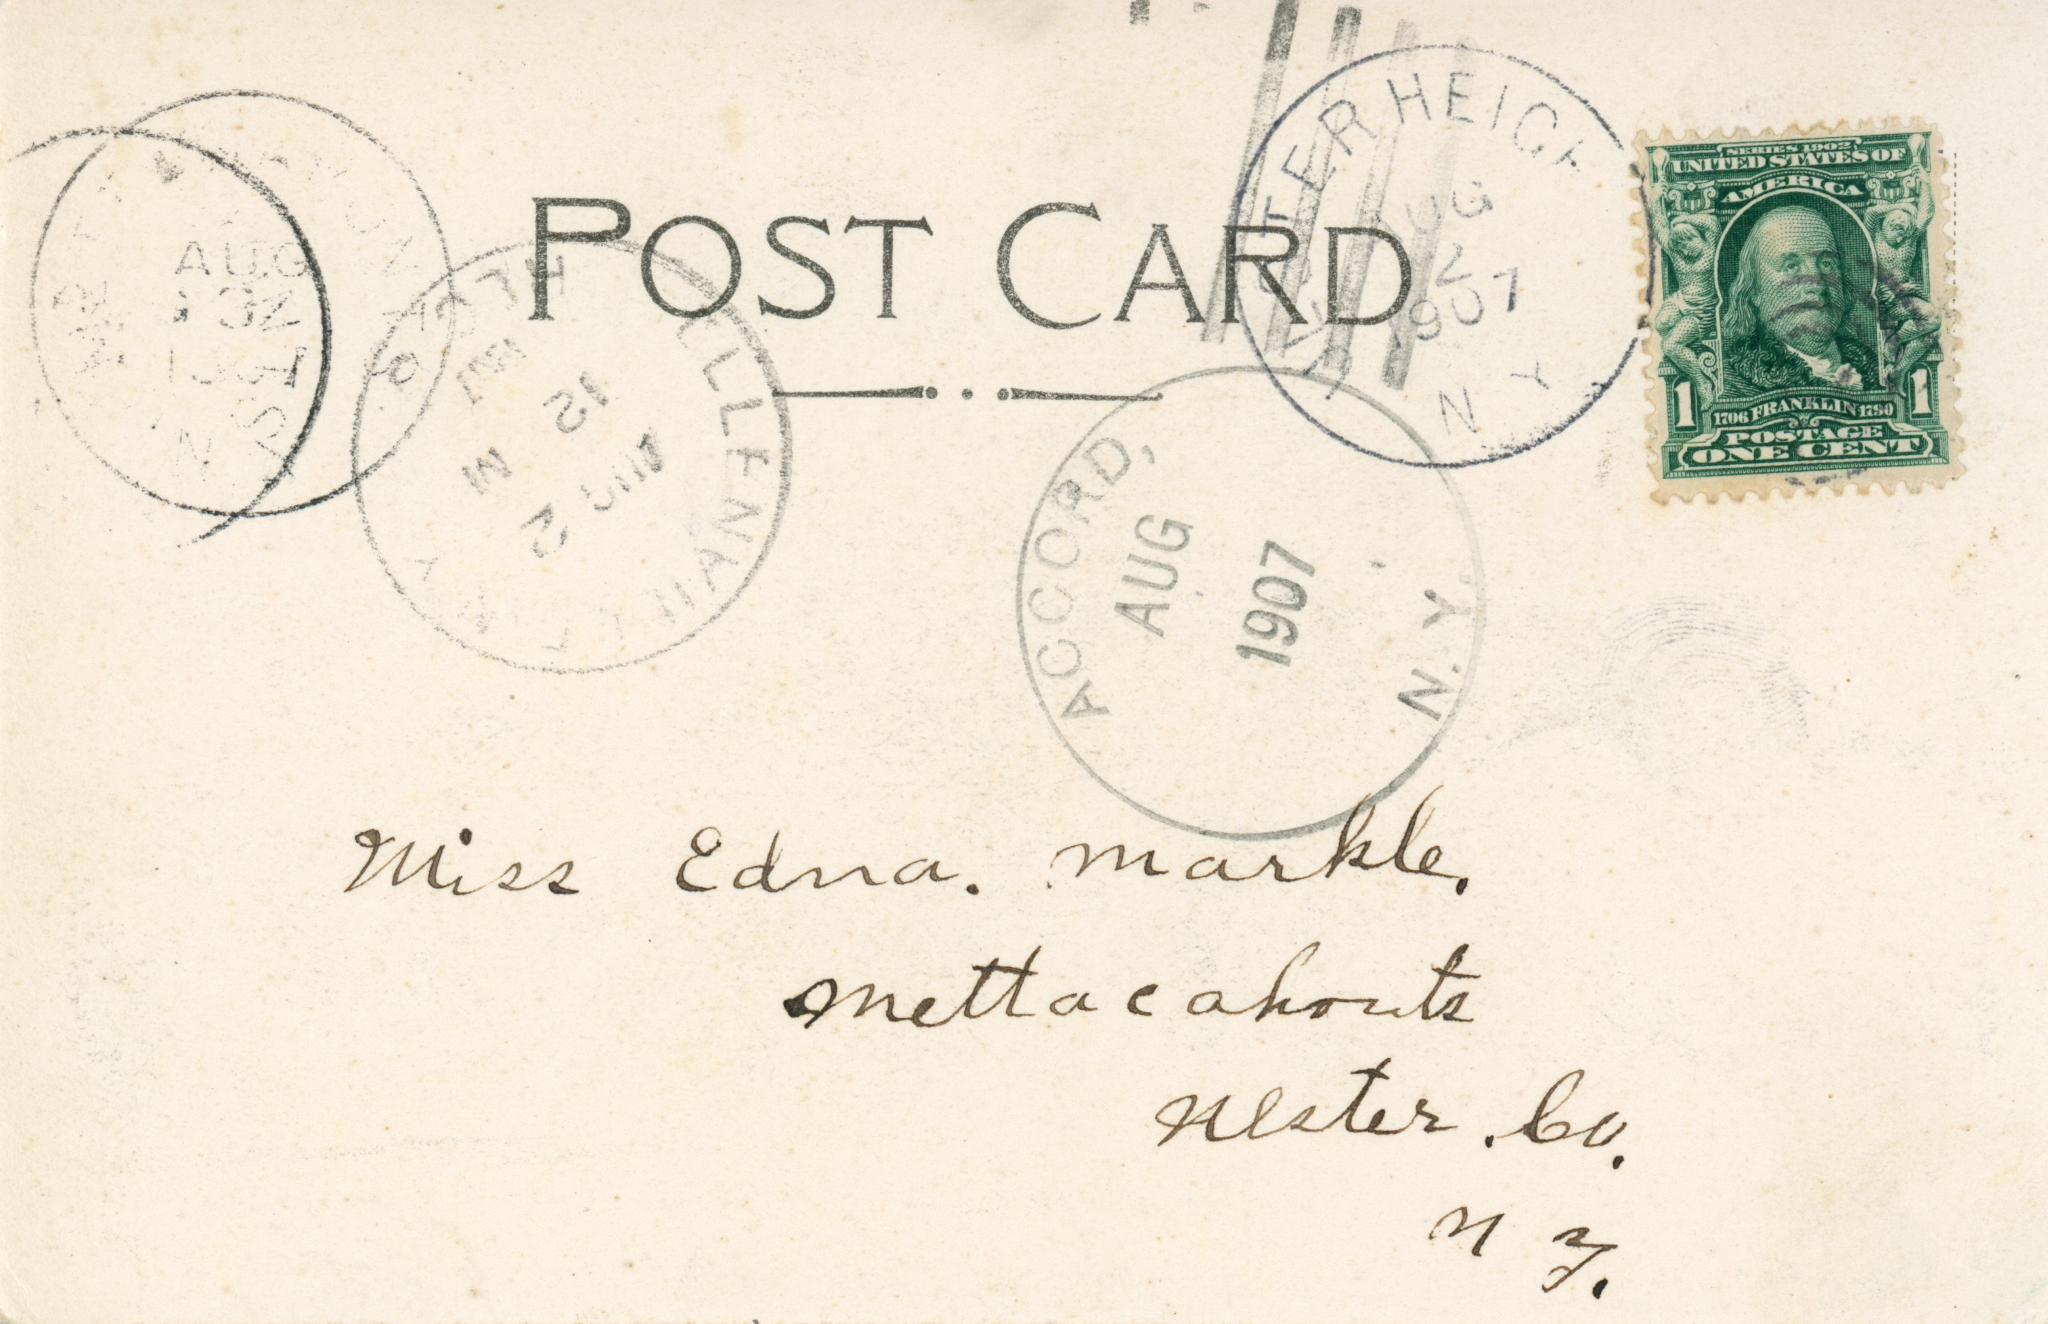 POST CARD
HEIGH
UG
2
1907
N Y
SERIES 1902
UNITED STATES OF
AMERICA
1 1
1706 FRANKLIN 1790
POSTAGE
ONE CENT
AUG
13
N
ELLENVILLE N Y
AUG 2
12 M
1907
ACCORD, N.Y.
AUG
1907
Miss Edna. Markle.
Mettacahonts
Ulster. Co.
N Y.